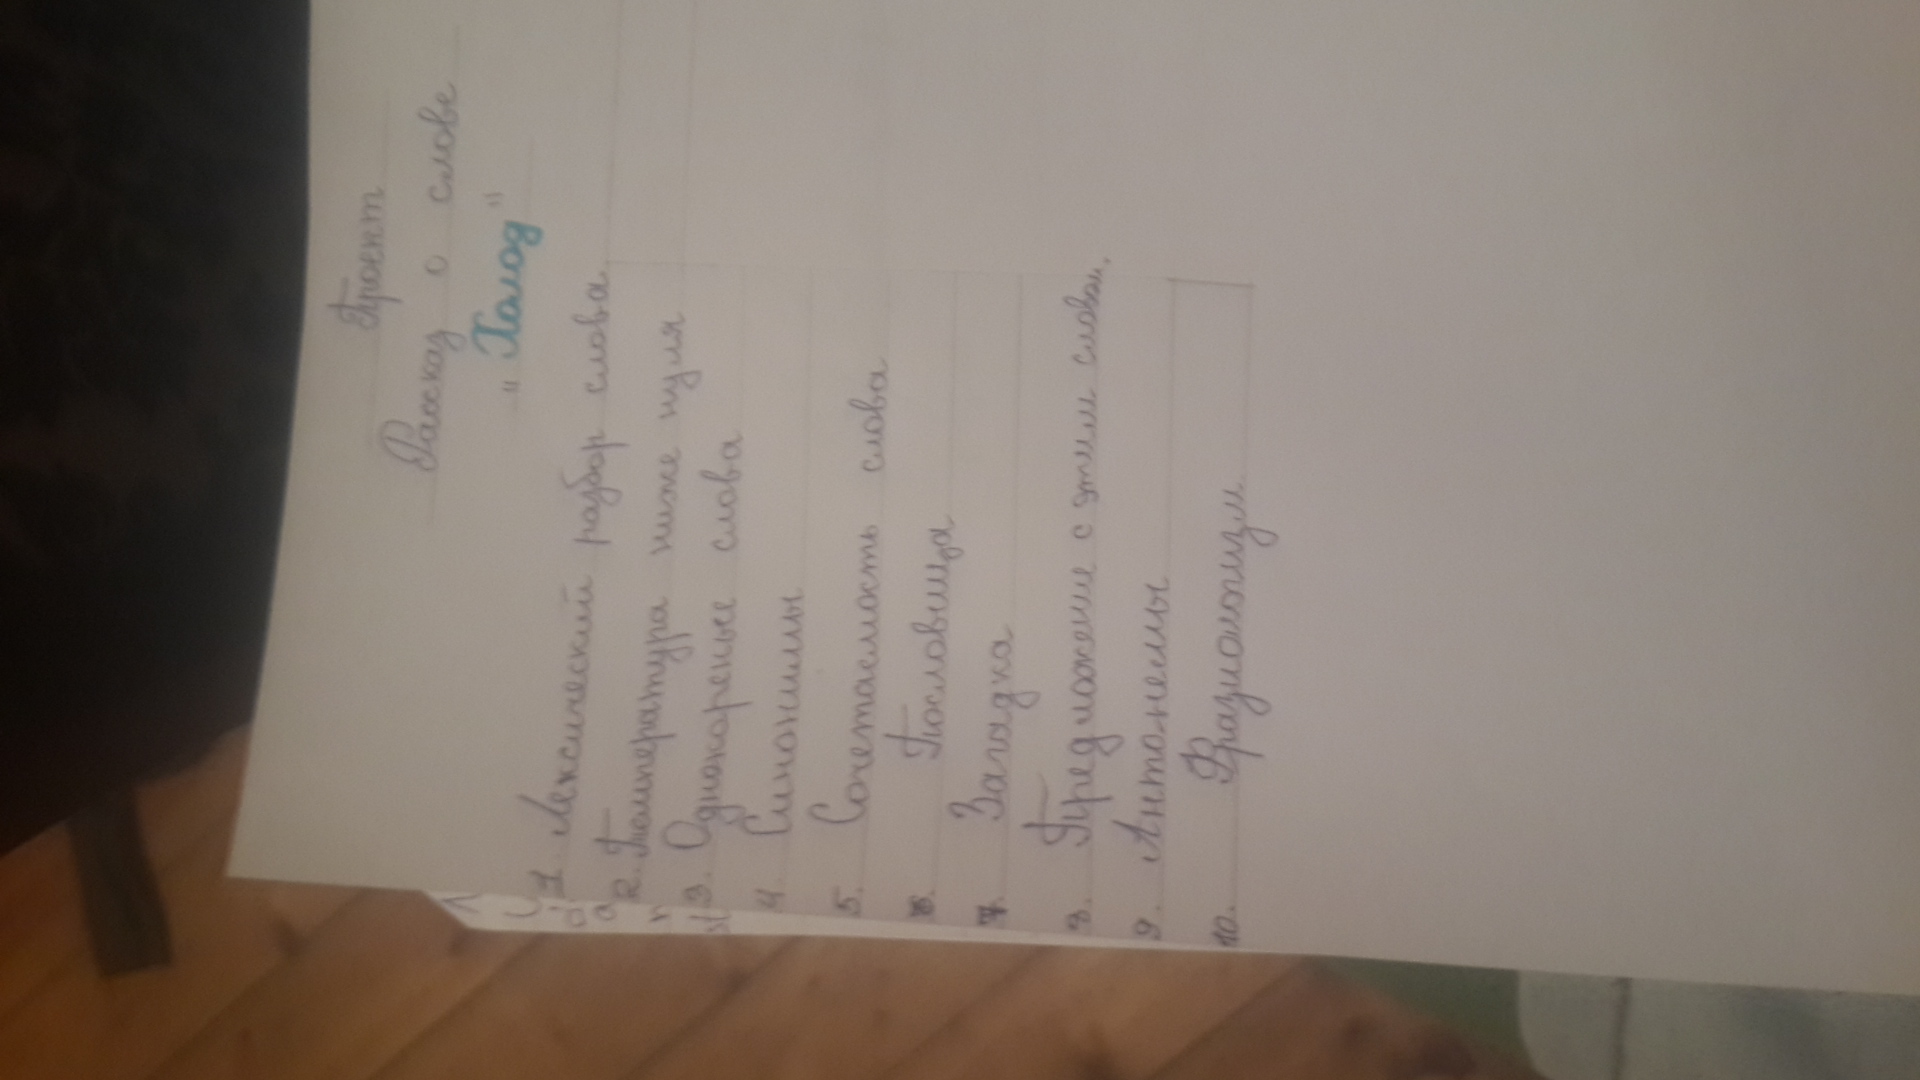 Проект
Рассказ о слове
"Холод"
1. Лексический разбор слова
2. Температура ниже нуля
3. Однокореные слова
4 Синонимы
5. Сочетаемость слова
6. Пословица
7. Загадка
8. Предложение с этим словом.
9. Антонемы
10. Фразиологизм